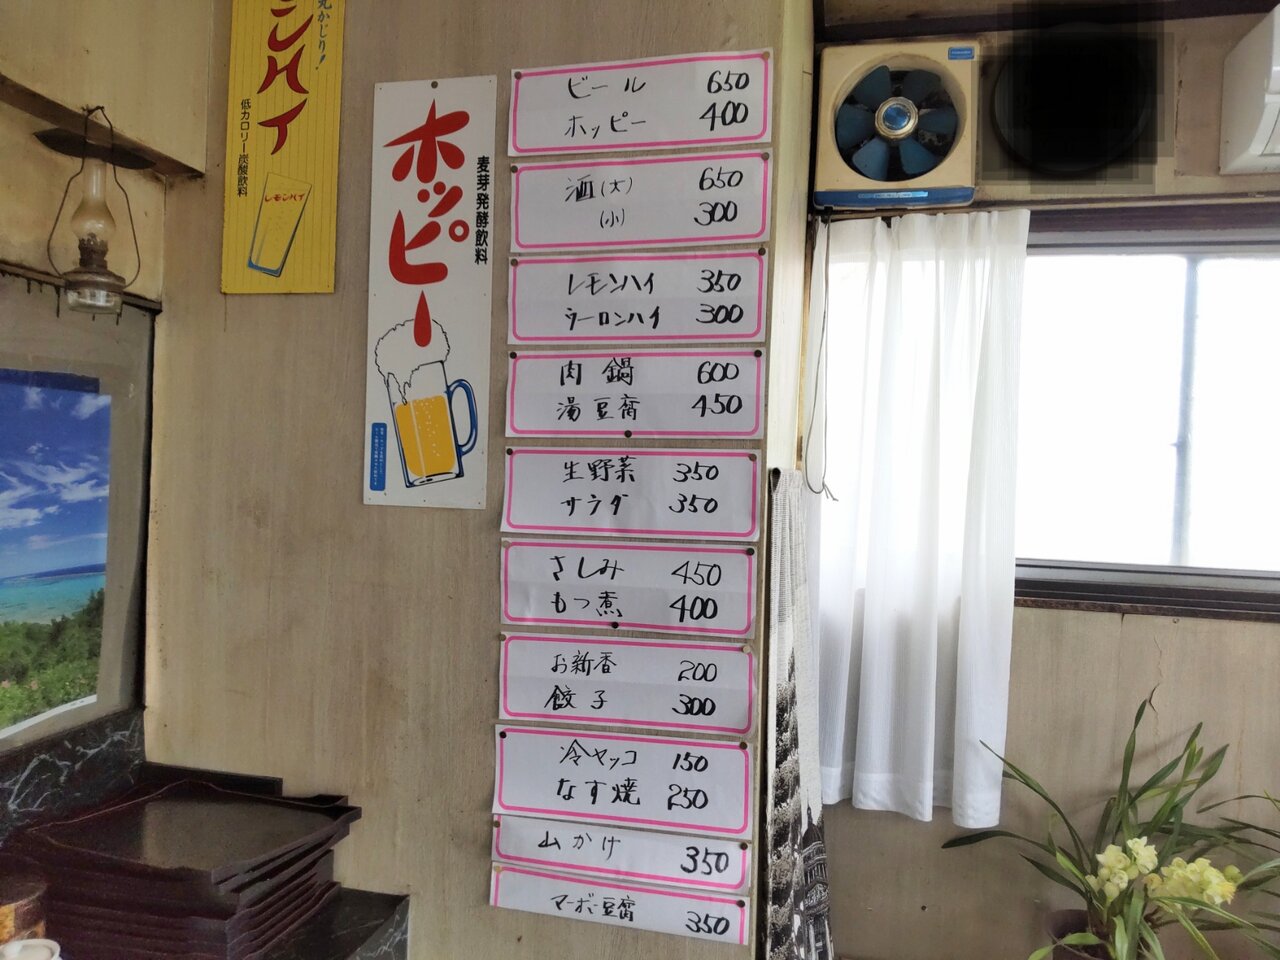 丸かじり!
ンハイ
低カロリー炭酸飲料
レモンハイ
ホッピー
麦芽発酵飲料
ビール 650
ホッピー 400
酒(大) 650
(小) 300
レモンハイ 350
ウーロンハイ 300
肉鍋 600
湯豆腐 450
生野菜 350
サラダ 350
さしみ 450
もつ煮 400
お新香 200
餃子 300
冷ヤッコ 150
なす焼 250
山かけ 350
マーボー豆腐 350